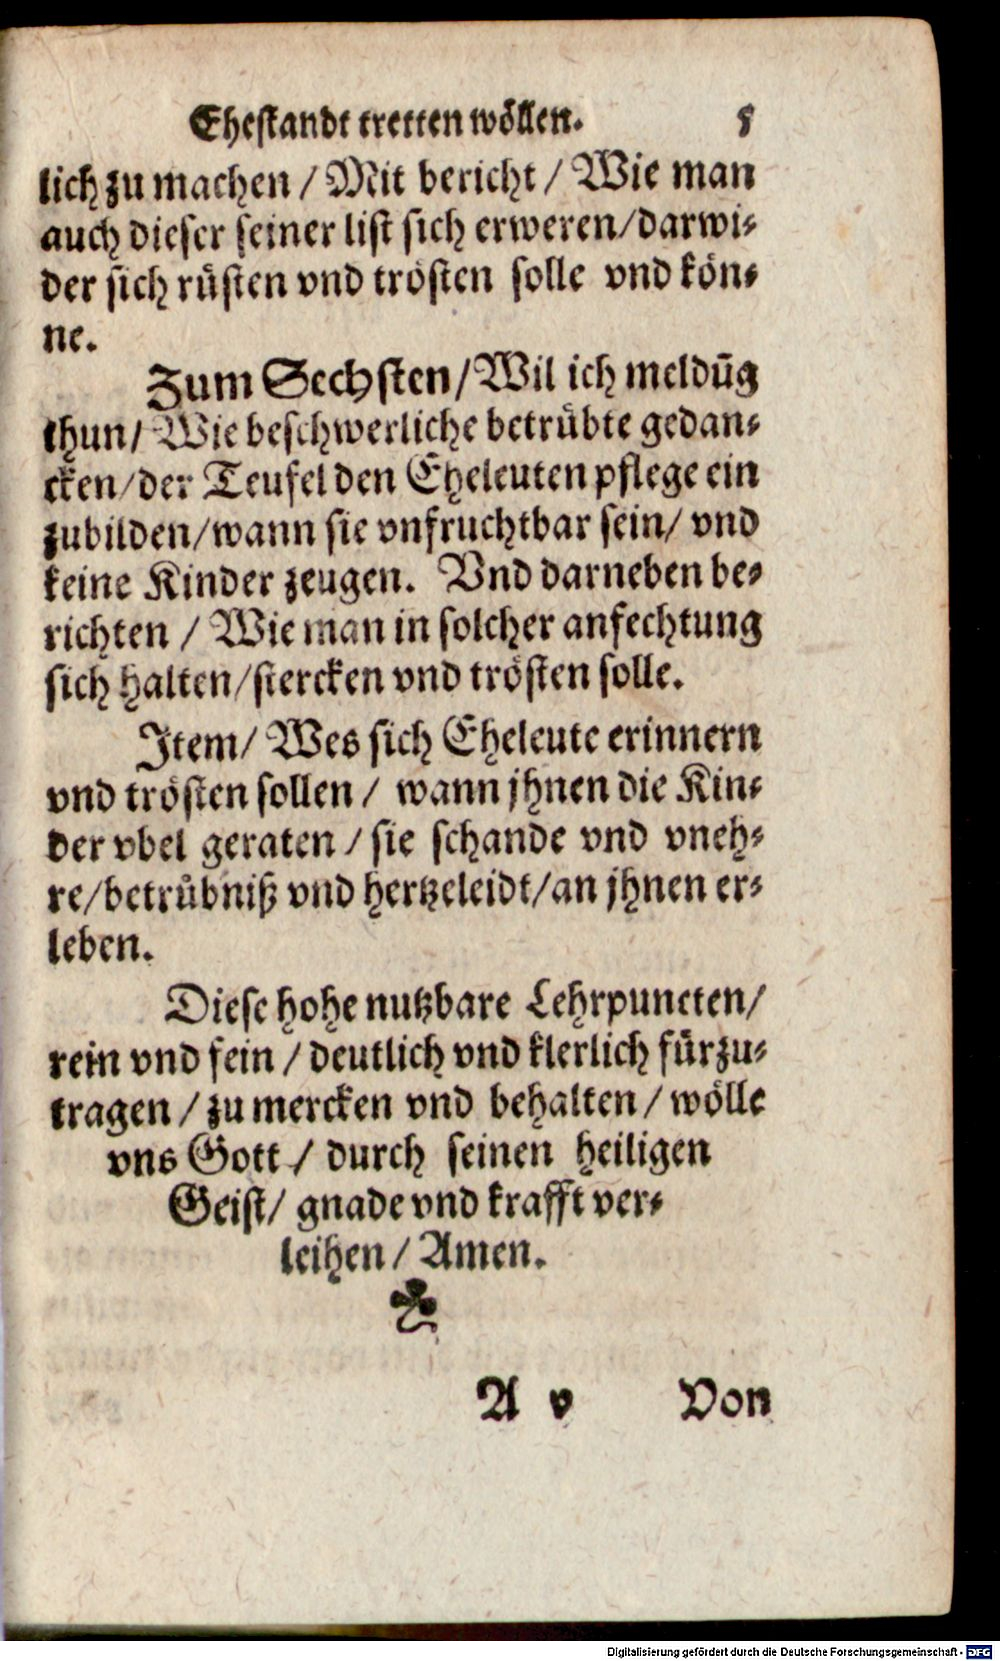 Ehestandt tretten wöllen. 5
lich zu machen / Mit bericht / Wie man
auch dieser seiner list sich erweren/darwi-
der sich rüsten vnd trösten solle vnd kön-
ne.
Zum Sechsten/Wil ich meldūg
thun/ Wie beschwerliche betrübte gedan-
cken/der Teufel den Eheleuten pflege ein
zubilden/wann sie vnfruchtbar sein/ vnd
keine Kinder zeugen. Vnd darneben be-
richten / Wie man in solcher anfechtung
sich halten/stercken vnd trösten solle.
Item/ Wes sich Eheleute erinnern
vnd trösten sollen / wann jhnen die Kin-
der vbel geraten / sie schande vnd vneh-
re/betrübniß vnd hertzeleidt/an jhnen er-
leben.
Diese hohe nutzbare Lehrpuncten/
rein vnd fein / deutlich vnd klerlich fürzu-
tragen / zu mercken vnd behalten / wölle
vns Gott / durch seinen heiligen
Geist/ gnade vnd krafft ver-
leihen / Amen.
A v Von
Digitalisierung gefördert durch die Deutsche Forschungsgemeinschaft - DFG